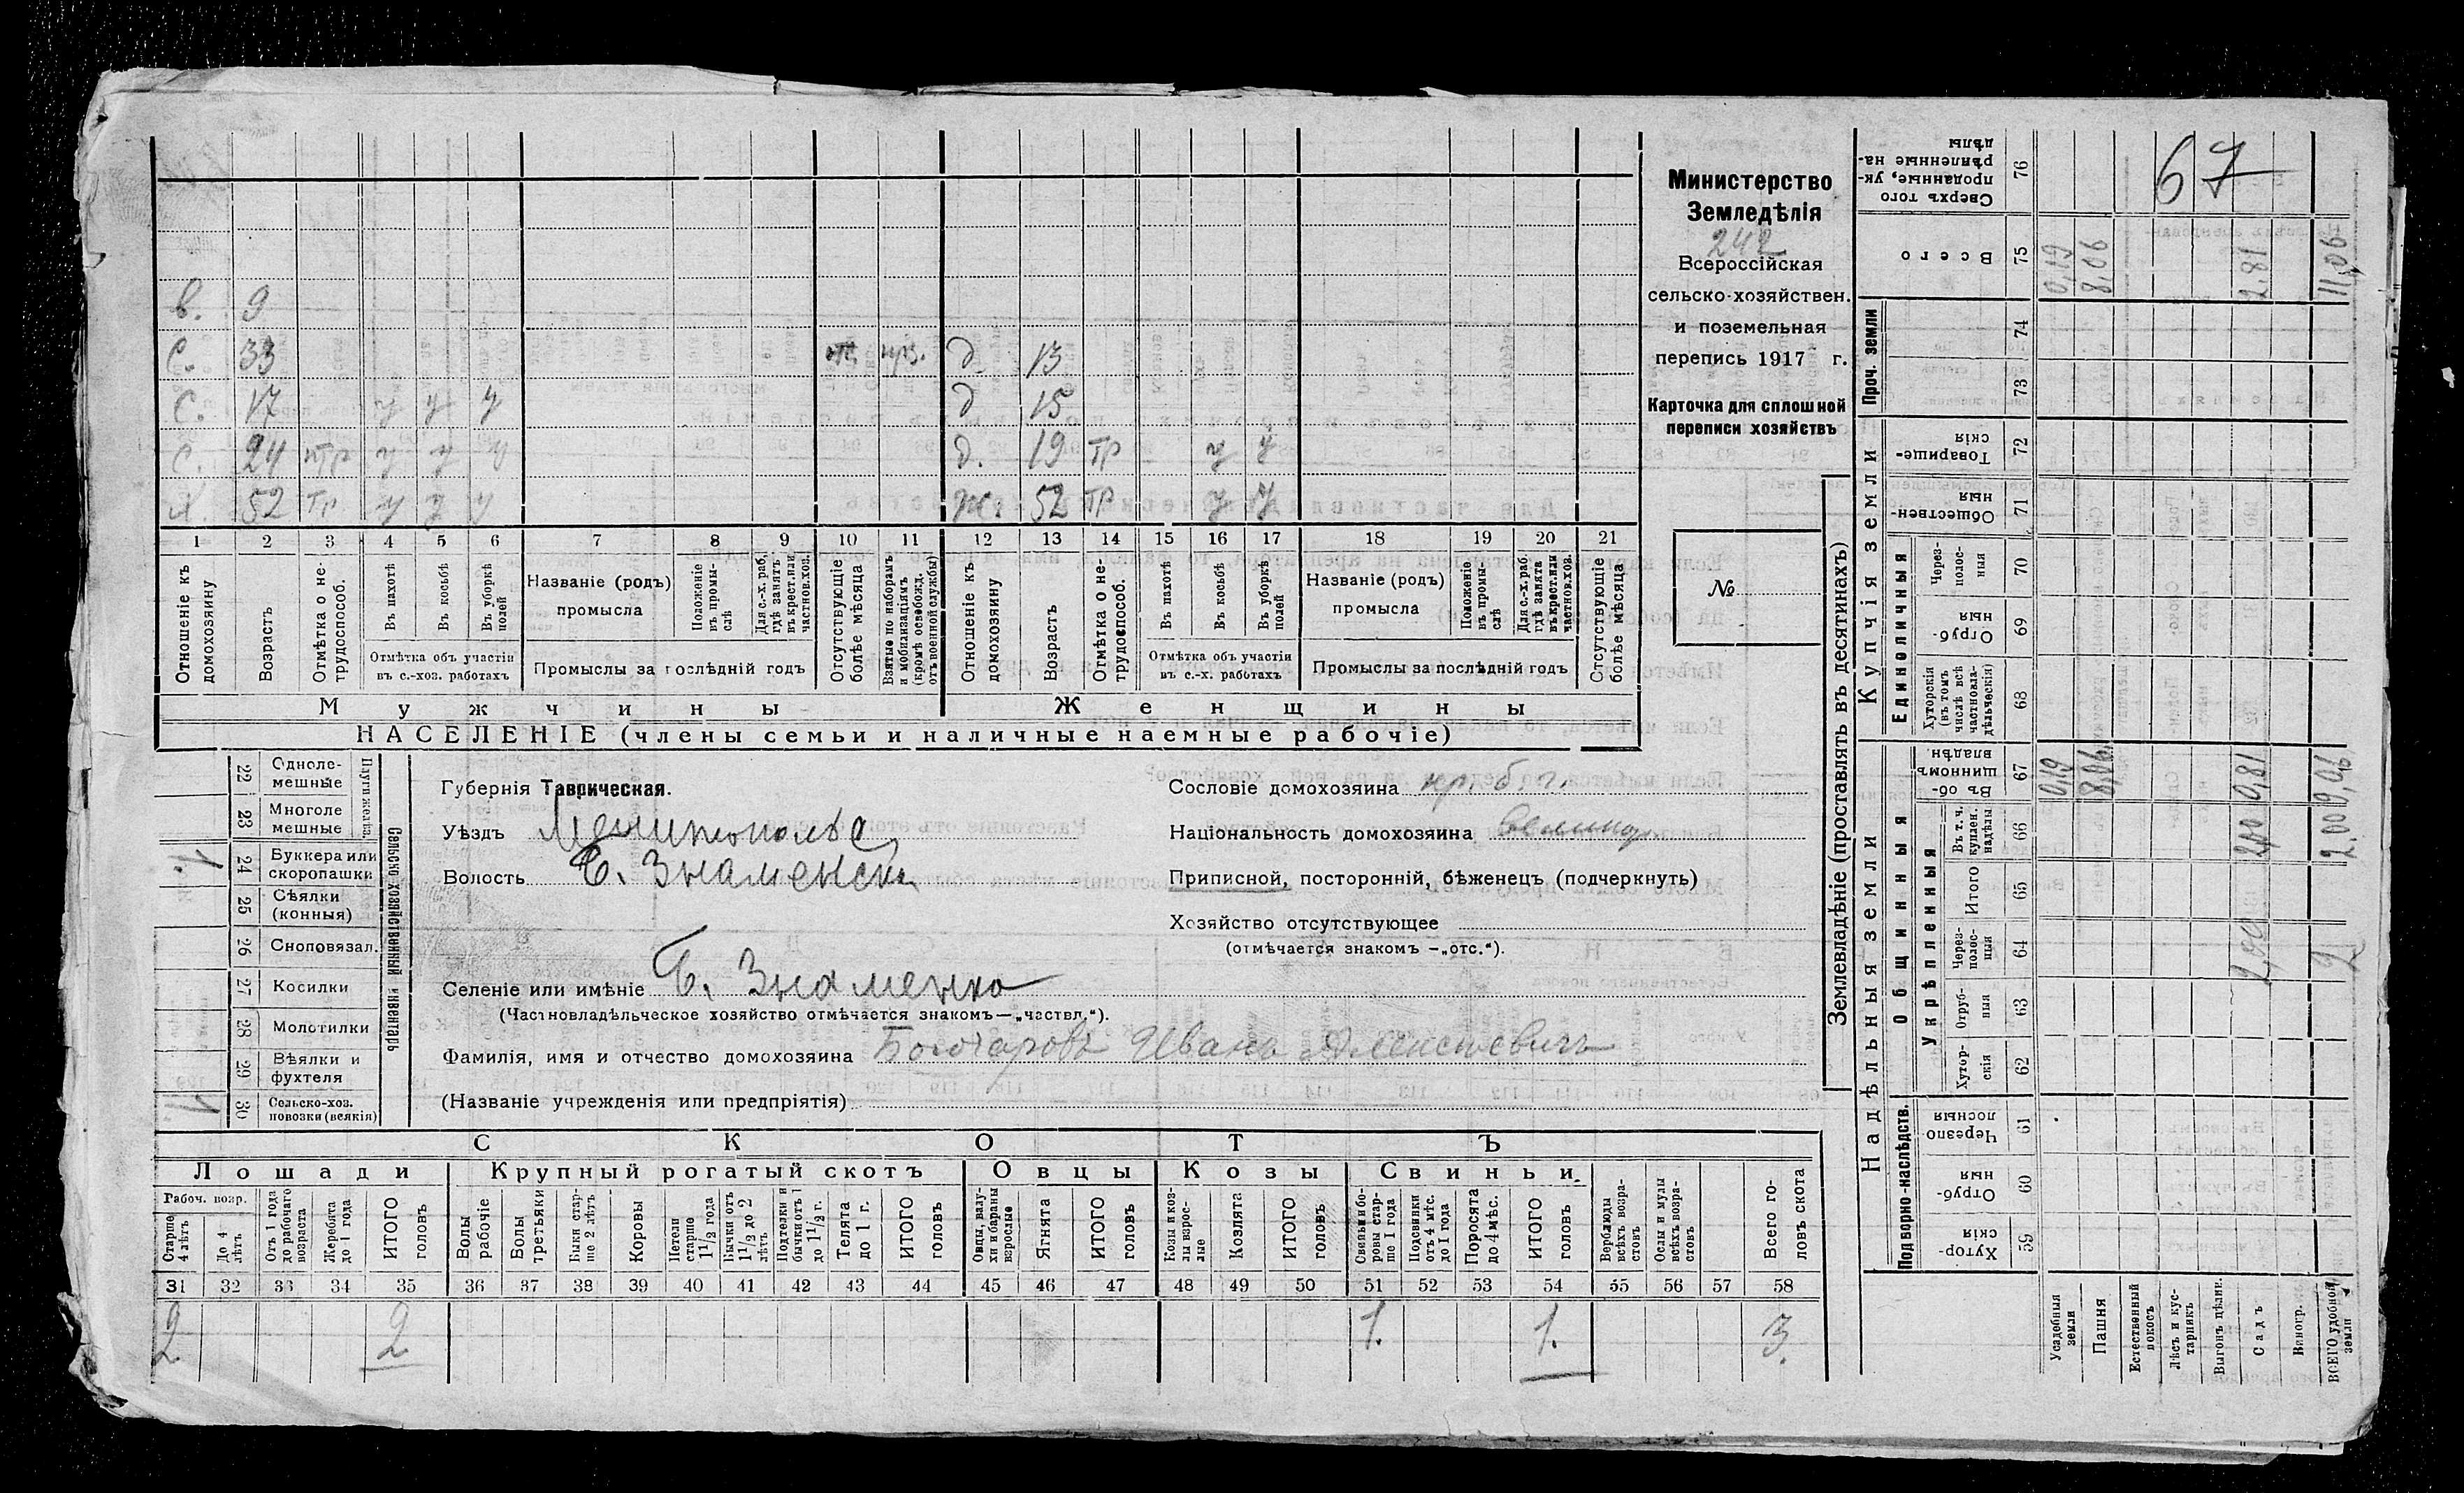 67
Министерство
Земледѣлія
242
Всероссійская
сельско-хозяйствен.
и поземельная
перепись 1917 г.
Карточка для сплошной
переписи хозяйствъ
№
в. 9
с. 33 отс. прз. д. 13
с. 17 у у у д 15
с. 24 нтр у у у д. 19 тр у у
х. 52 тр. у у у ж. 52 тр у у
1 2 3 4 5 6 7 8 9 10 11 12 13 14 15 16 17 18 19 20 21
Отношеніе къ домохозяину
Возрастъ
Отмѣтка о не-трудоспособ.
Въ пахотѣ
Въ косьбѣ
Въ уборкѣ полей
Отмѣтка объ участіи въ с.-хоз. работахъ
Названіе (родъ) промысла
Положеніе въ промы-слѣ
Для с.-х. раб., гдѣ занятъ въ крест. или частнов. хоз.
Промыслы за послѣдній годъ
Отсутствующіе болѣе мѣсяца
Взятые по наборамъ и мобилизаціямъ (кромѣ освобожд. отъ военной службы)
Отношеніе къ домохозяину
Возрастъ
Отмѣтка о не-трудоспособ.
Въ пахотѣ
Въ косьбѣ
Въ уборкѣ полей
Отмѣтка объ участіи въ с.-х. работахъ
Названіе (родъ) промысла
Положеніе въ промы-слѣ
Для с.-х. раб. гдѣ занята въ крест. или частнов. хоз.
Промыслы за послѣдній годъ
Отсутствующіе болѣе мѣсяца
Мужчины Женщины
НАСЕЛЕНІЕ (члены семьи и наличные наемные рабочіе)
Сельско-хозяйственный инвентарь
Плуги желѣз.
22 Одноле-мешные
23 Многоле мешные
24 Буккера или скоропашки 1
25 Сѣялки (конныя)
26 Сноповязал.
27 Косилки
28 Молотилки
29 Вѣялки и фухтеля
30 Сельско-хоз. повозки (всякія) 1
Губернія Таврическая.
Уѣздъ Мелитопольс
Волость Б. Знаменск.
Селеніе или имѣніе Б. Знаменка
(Частновладѣльческое хозяйство отмѣчается знакомъ—„частвл.“).
Фамилія, имя и отчество домохозяина Бочаровъ Иванъ Алексѣевичъ
(Названіе учрежденія или предпріятія)
Сословіе домохозяина кр. б. г.
Національность домохозяина великор.
Приписной, посторонній, бѣженецъ (подчеркнуть)
Хозяйство отсутствующее
(отмѣчается знакомъ —„отс.“).
СКОТЪ
Лошади Крупный рогатый скотъ Овцы Козы Свиньи
Рабоч. возр.
Старше 4 лѣтъ
До 4 лѣтъ
Отъ 1 года до рабочаго возраста
Жеребята до 1 года
ИТОГО головъ
Волы рабочіе
Волы третьяки
Быки стар-ше 2 лѣтъ
Коровы
Нетели старше 1 1/2 года
Бычки отъ 1 1/2 до 2 лѣтъ
Подтелки и бычки отъ 1 до 1 1/2 г.
Телята до 1 г.
ИТОГО головъ
Овцы, валу-хи и бараны взрослые
Ягнята
ИТОГО головъ
Козы и коз-лы взрос-лые
Козлята
ИТОГО головъ
Свиньи и бо-ровы стар-ше 1 года
Подсвинки отъ 4 мѣс. до 1 года
Поросята до 4 мѣс.
ИТОГО головъ
Верблюды всѣхъ возра-стовъ
Ослы и мулы всѣхъ возра-стовъ
Всего го-ловъ скота
31 32 33 34 35 36 37 38 39 40 41 42 43 44 45 46 47 48 49 50 51 52 53 54 55 56 57 58
2 2 1. 1. 3.
Землевладѣніе (проставлять въ десятинахъ)
Надѣльныя земли Купчія земли Проч. земли
Подворно-наслѣдств. Общинныя Единоличныя
Укрѣпленныя
Хутор-скія 59
Отруб-ныя 60
Черезпо лосныя 61
Хутор-скія 62
Отруб-ныя 63
Через-полос-ныя 64
Итого 65
Въ т. ч. куплен. надѣлы 66
Въ об-щинномъ владѣн. 67
Хуторскія (въ томъ числѣ всѣ частновла-дѣльческія) 68
Отруб-ныя 69
Через-полос-ныя 70
Обществен-ныя 71
Товарище-скія 72
73
74
Всего 75
Сверхъ того проданные, ук-рѣпленные на-дѣлы 76
Усадебныя земли 0,19 0,19
Пашня 8,06 8,06
Естественный покосъ
Лѣсъ и кус-тарникъ
Выгонъ цѣлин.
Садъ 2,00 2,00 0,81 2,81
Виногр.
ВСЕГО удобной земли 2 2.00 9,06 11,06